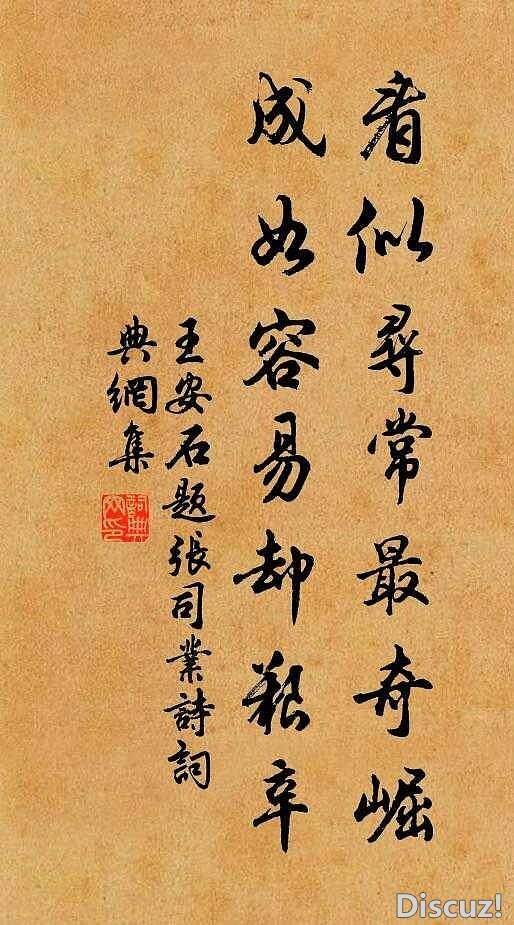 看似尋常最奇崛
成如容易却艱辛
王安石題張司業詩詞
典網集
Discuz!